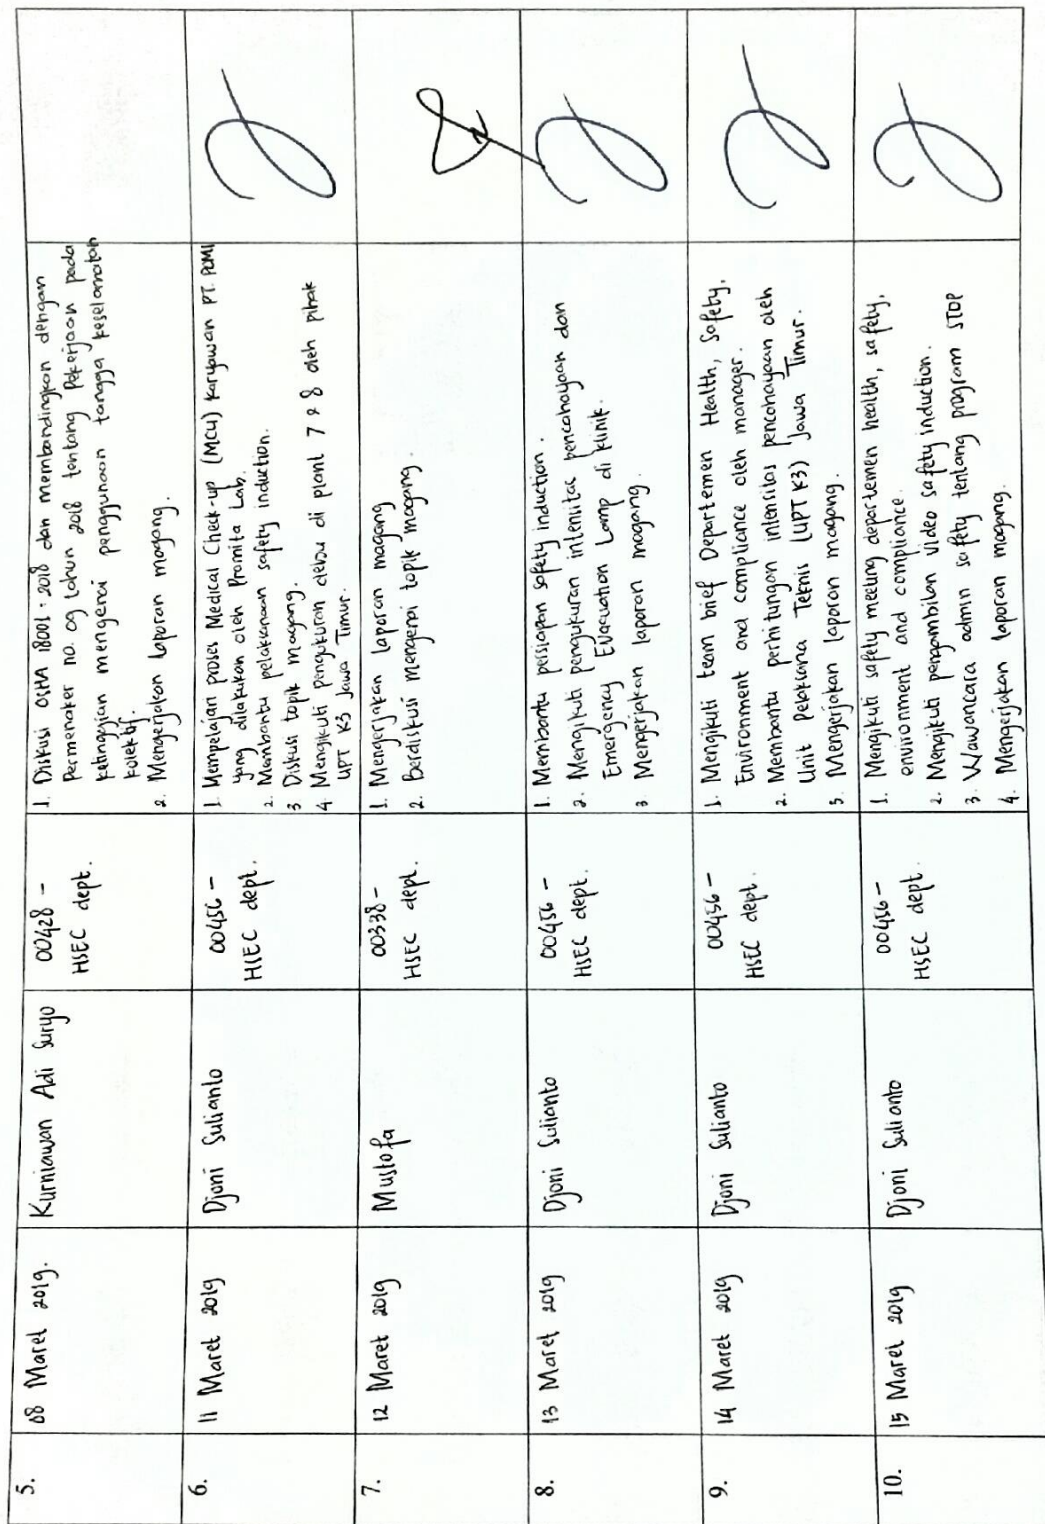 5.
08 Maret 2019.
Kurniawan Adi Suryo
00428 -
HSEC dept.
1. Diskusi OSHA 18001 : 2018 dan membandingkan dengan
Permenaker no. 09 tahun 2018 tentang Pekerjaan pada
ketinggian mengenai penggunaan tangga keselamatan
kolektif.
2. Mengerjakan laporan magang.
6.
11 Maret 2019
Djoni Sulianto
00456 -
HSEC dept.
1. Mempelajari proses Medical Check-up (MCU) Karyawan PT. PDMI
yang dilakukan oleh Promita Lab.
2. Membantu pelaksanaan safety induction.
3 Diskusi topik magang.
4 Mengikuti pengukuran debu di plant 7 & 8 oleh pihak
UPT K3 Jawa Timur.
7.
12 Maret 2019
Mustofa
00338 -
HSEC dept.
1. Mengerjakan laporan magang
2. Berdiskusi mengenai topik magang.
8.
13 Maret 2019
Djoni Sulianto
00456 -
HSEC dept.
1. Membantu persiapan safety induction.
2. Mengikuti pengukuran intensitas pencahayaan dan
Emergency Evacuation Lamp di klinik.
3 Mengerjakan laporan magang.
9.
14 Maret 2019
Djoni Sulianto
00456 -
HSEC dept.
1. Mengikuti team brief Departemen Health, Safety,
Environment and compliance oleh manager.
2. Membantu perhitungan intensitas pencahayaan oleh
Unit Pelaksana Teknis (UPT K3) Jawa Timur.
3. Mengerjakan laporan magang.
10.
15 Maret 2019
Djoni Sulianto
00456 -
HSEC dept.
1. Mengikuti safety meeting departemen health, safety,
environment and compliance.
2. Mengikuti pengambilan video safety induction.
3. Wawancara admin safety tentang program STOP
4. Mengerjakan laporan magang.